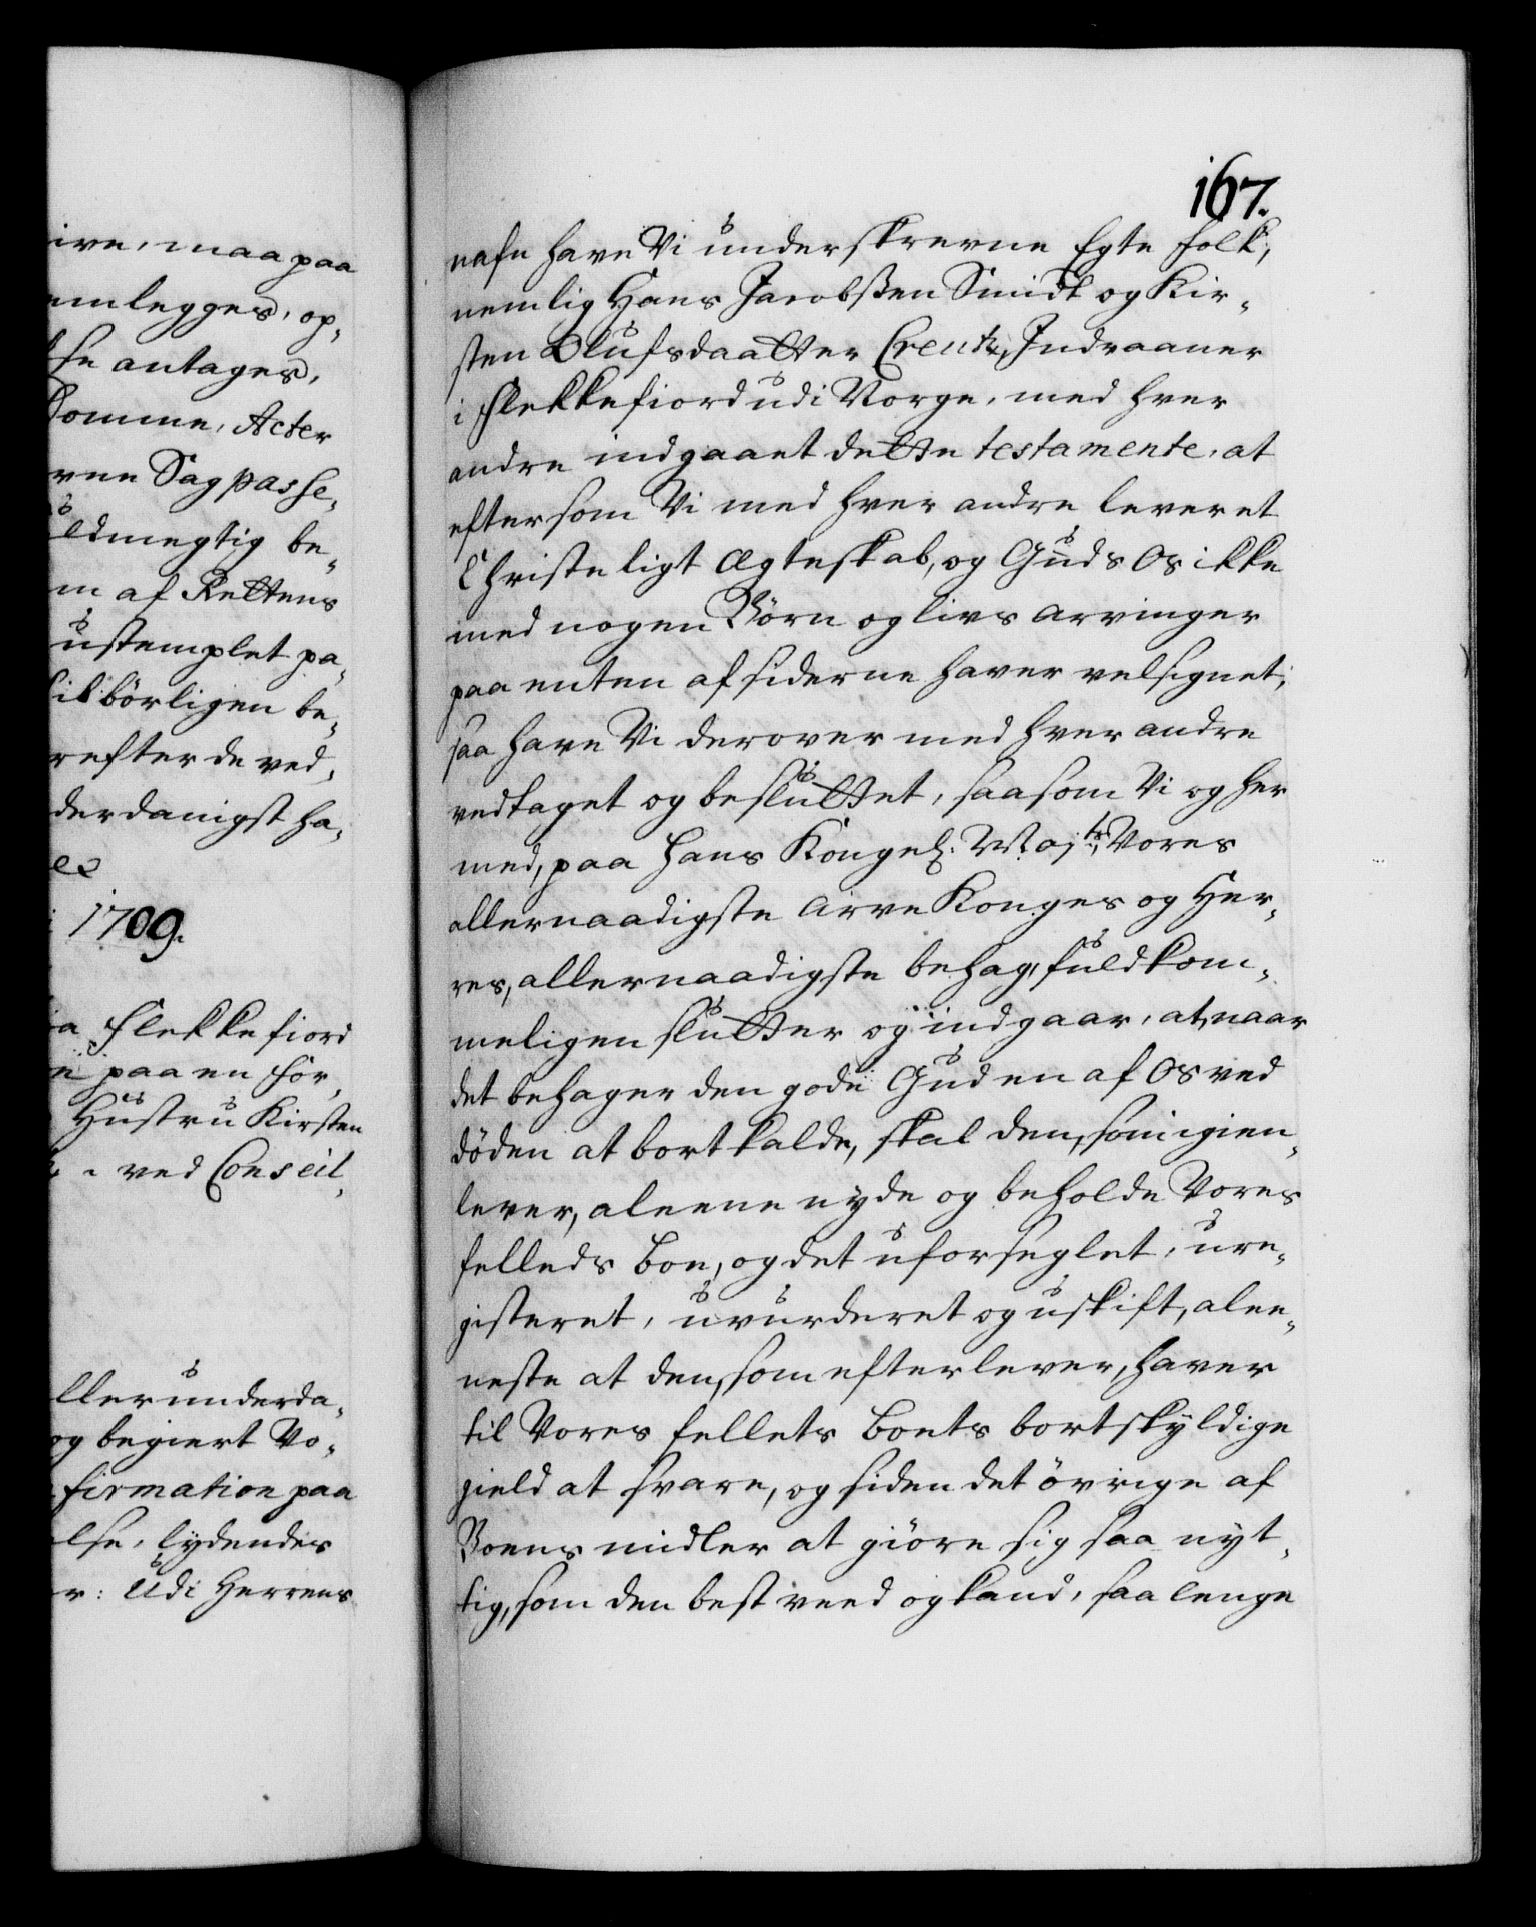 ive, maa paa
emlegges, op-
lse antages,
Domme, Acter
ven Sag passe-
uldmegtig be-
m af Rettens
ustemplet pa-
til børligen be-
refter de ved-
derdanigst ha-
1709.
Flekkefiord
paa en for-
Hustru Kirsten
ved Conseil-
ller underda-
og begiert Vo-
firmation paa
else, lydendes
r: Udi Herrens
167.
nafn have Vi underskrevne Egte Folk,
nemlig Hans Jacobssen Smidt og Kir-
sten Olufsdaatter Creutz, Indvaaner
i Flekkefiord udi Norge, med hver
andre indgaaet dette testamente, at
eftersom Vi med hver andre levet et
Christeligt Ægteskab, og Gud os ikke
med nogen Børn og livs arvinger
paa enten af siderne haver velsignet,
saa have Vi derover med hver andre
vedtaget og besluttet, saasom Vi og her
med, paa Hans Kongel. Majts Vores
allernaadigste Arve Konges og Her-
res, allernaadigste behag, fuldkom-
meligen slutter og indgaar, at, naar
det behager den gode Gud en af os ved
døden at bortkalde, skal den, som igien-
lever, aleene nyde og beholde Vores
felleds Boe, og det uforseglet, ure-
gisteret, uvurderet og uskift, alee-
neste at den, som efterlever, haver
til Vores fellets Boets bortskyldige
gield at svare, og siden det øvrige af
Boens midler at giøre sig saa nyt-
tig, som den best veed og kand, saa lenge